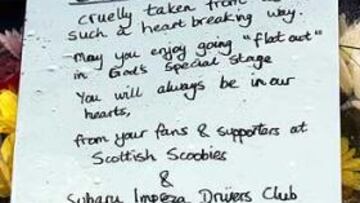 cruelly taken from
such a heart breaking way.
May you enjoy going "flat out"
in God's Special Stage
You will always be in our
hearts,
from your fans & supporters at
Scottish Scoobies
&
Subaru Impreza Drivers Club